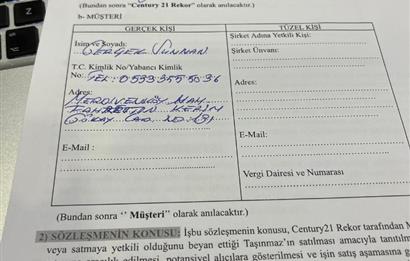 Z
(Bundan sonra "Century 21 Rekor" olarak anılacaktır.)
b- MÜŞTERİ
GERÇEK KİŞİ
İsim ve Soyadı:
T.C. Kimlik No/Yabancı Kimlik
No: TEL: 0533 355 5036
Adres:
MERDİVENKÖY MAH
FAHRETTİN KERİM
GÖKAY CAD. NO:
E-Mail :
TÜZEL KİŞİ
Şirket Adına Yetkili Kişi:
Şirket Ünvanı:
Adres:
E-Mail:
Vergi Dairesi ve Numarası
(Bundan sonra '' Müşteri" olarak anılacaktır.)
2) SÖZLEŞMENİN KONUSU: İşbu sözleşmenin konusu, Century21 Rekor tarafından
veya satmaya yetkili olduğunu beyan ettiği Taşınmaz'ın satılması amacıyla tanıtılm
edilmesi, potansiyel alıcılara gösterilmesi ve işin satış aşamasına